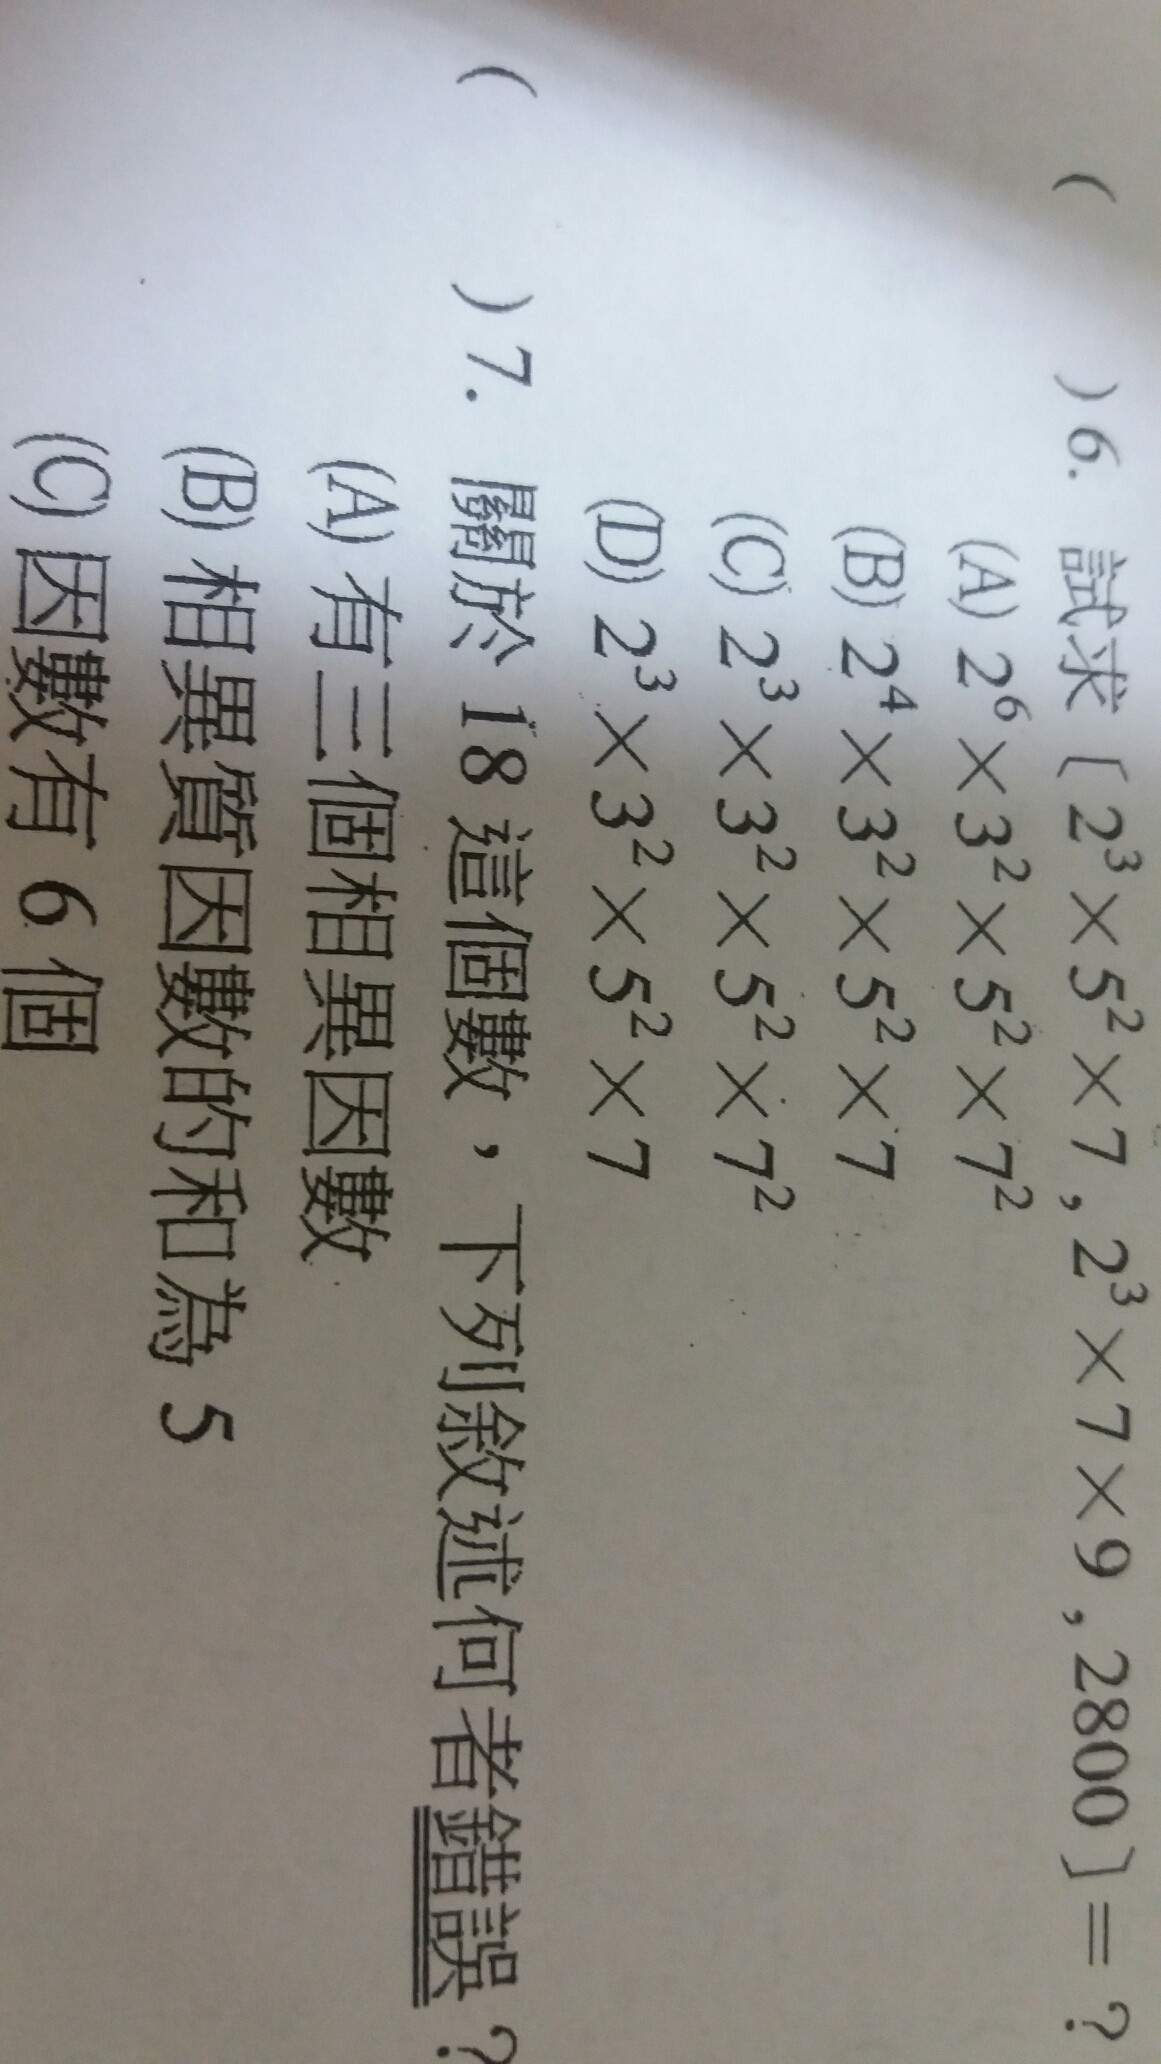 (　) 6. 試求〔2³×5²×7 , 2³×7×9 , 2800〕=？
(A) 2⁶×3²×5²×7²
(B) 2⁴×3²×5²×7
(C) 2³×3²×5²×7²
(D) 2³×3²×5²×7
(　) 7. 關於 18 這個數，下列敘述何者錯誤？
(A) 有三個相異因數
(B) 相異質因數的和為 5
(C) 因數有 6 個